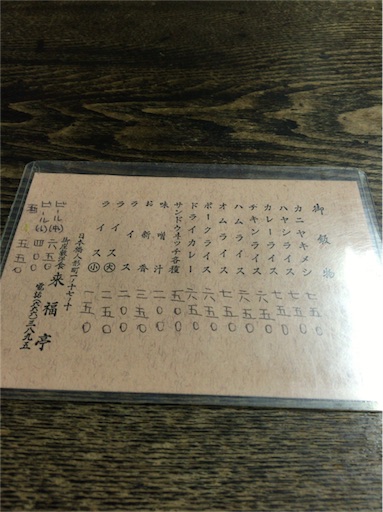 御飯物
カニヤキメシ 七五〇
ハヤシライス 七五〇
カレーライス 六五〇
チキンライス 六五〇
ハムライス 七五〇
オムライス 七五〇
ポークライス 六五〇
ドライカレー 六五〇
サンドウヰッチ各種
味噌汁 一五〇
お新香
ライス 二〇〇
ライス大 二五〇
ライス小 一五〇
日本橋人形町一ノ十七ノ十
御座敷洋食 来福亭
三八九五
ビール(中) 六五〇
ビール(小) 四〇〇
五五〇